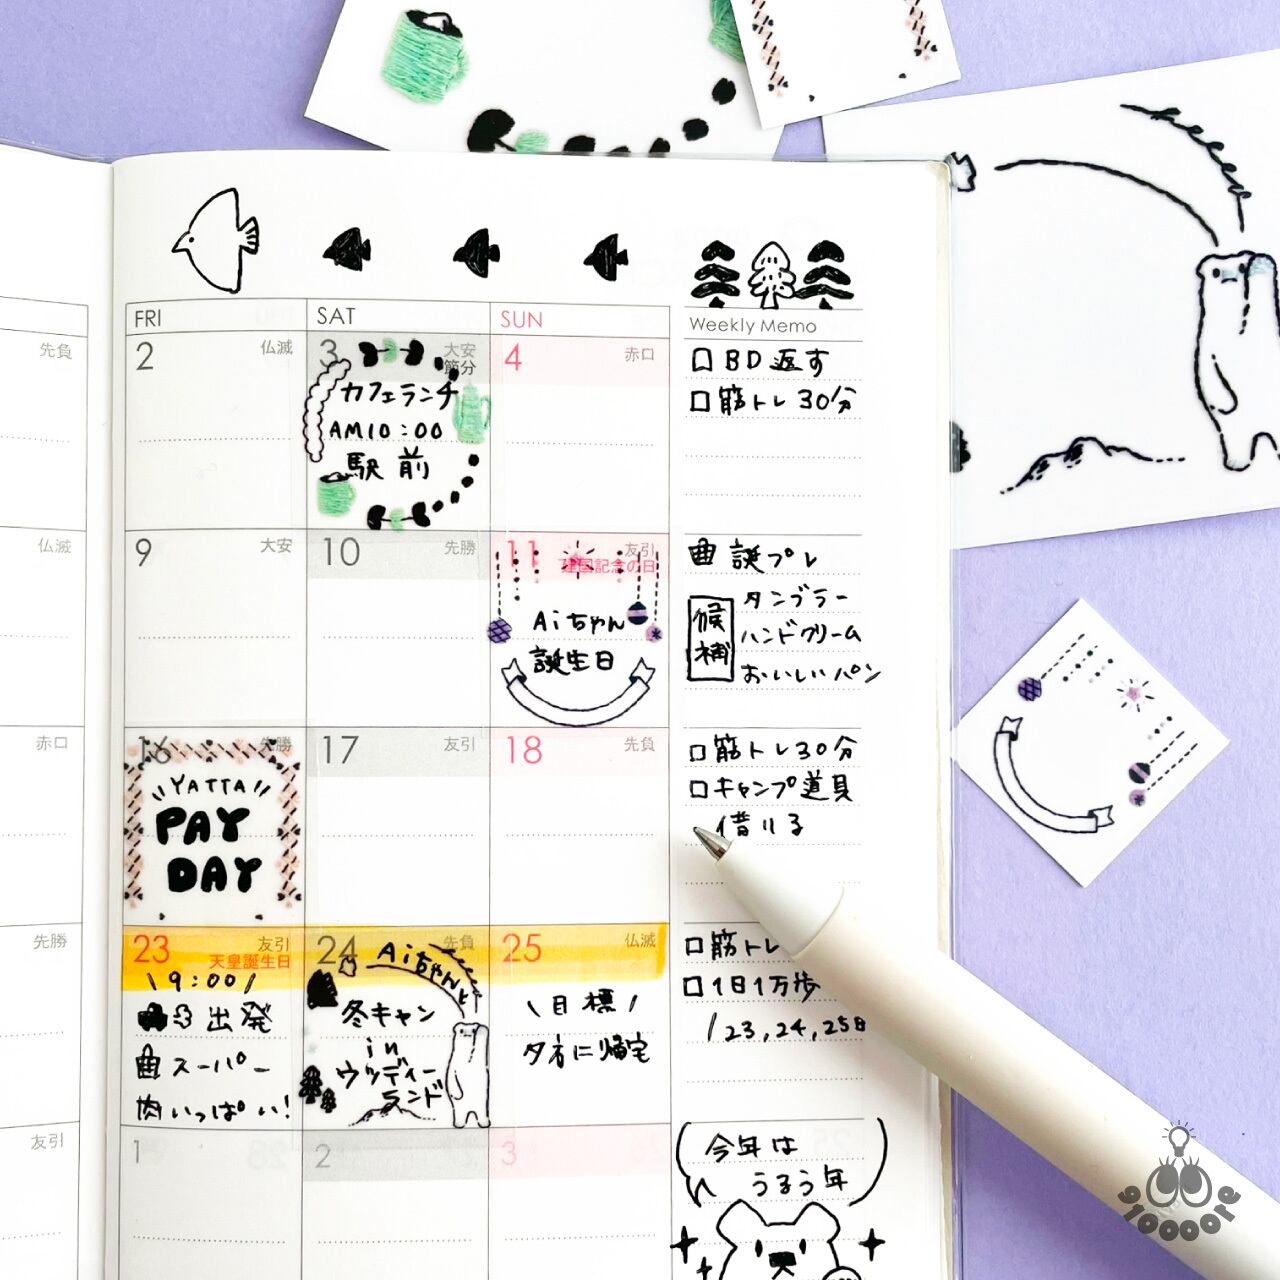 FRI
SAT
SUN
Weekly Memo
先負
2 仏滅
3 大安
節分
カフェランチ
AM10:00
駅前
4 赤口
□ BD返す
□ 筋トレ30分
仏滅
9 大安
10 先勝
11 友引
建国記念の日
Aiちゃん
誕生日
誕プレ
候補
タンブラー
ハンドクリーム
おいしいパン
赤口
16 先勝
\\YATTA//
PAY
DAY
17 友引
18 先負
□ 筋トレ30分
□ キャンプ道具
借りる
先勝
23 友引
天皇誕生日
\9:00/
出発
スーパー
肉いっぱい!
24 先負
Aiちゃんと
冬キャン
in
ウッディー
ランド
25 仏滅
\目標/
夕方に帰宅
□ 筋トレ
□ 1日1万歩
/23,24,25日
友引
1
2
3
今年は
うるう年
910000re